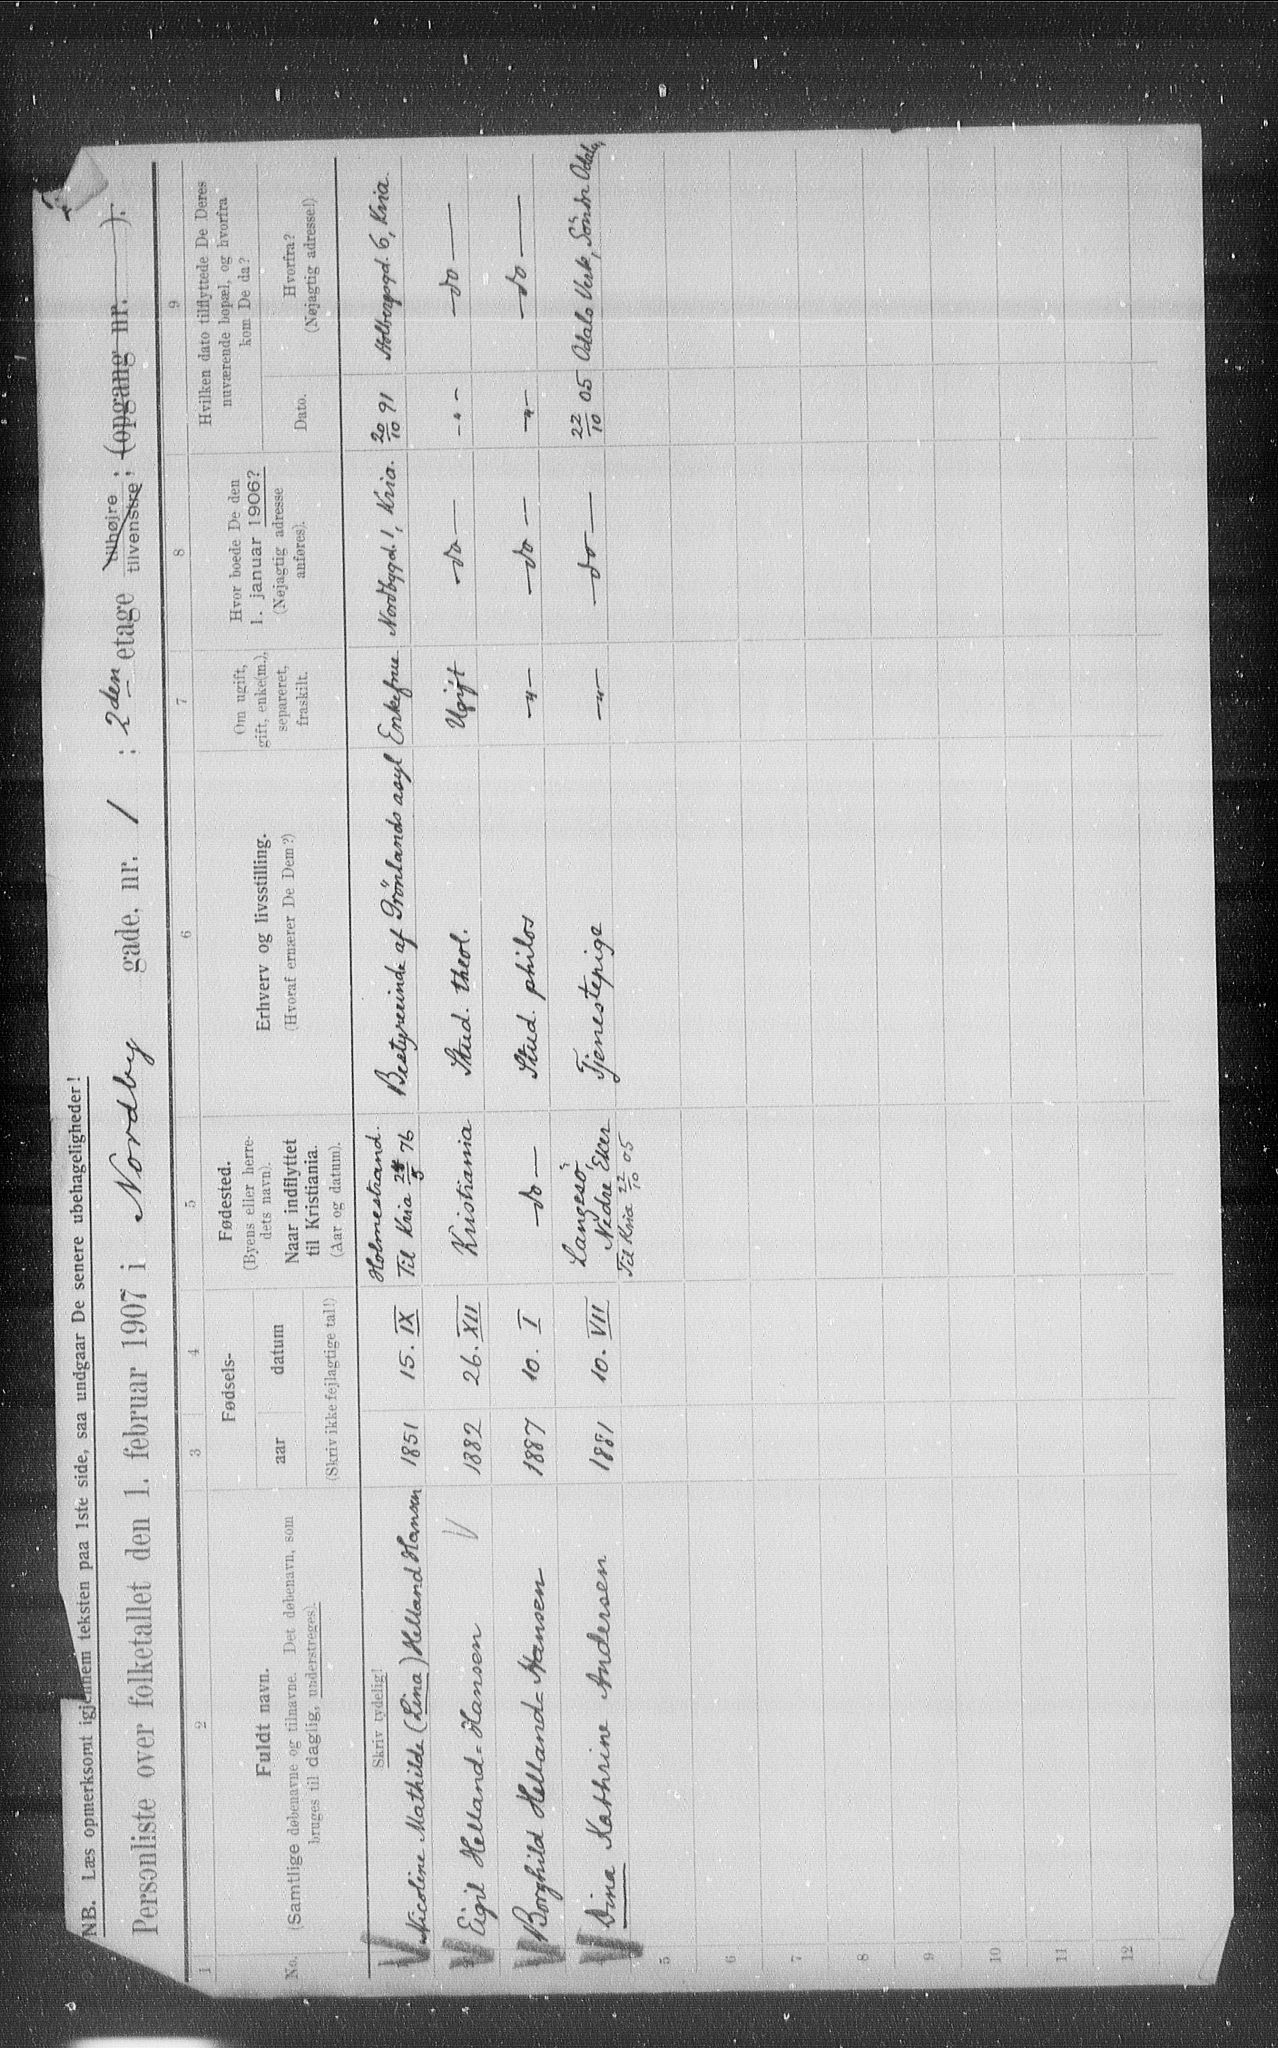 NB. Læs opmerksomt igjennem teksten paa 1ste side, saa undgaar De senere ubehageligheder!
Personliste over folketallet den 1. februar 1907 i Nordby gade, nr. 1 : 2den etage tilhøjre tilvenstre ; (opgang nr. ).
1 2 3 4 5 6 7 8 9
No.
Fuldt navn.
(Samtlige døbenavne og tilnavne. Det døbenavn, som
bruges til daglig, understreges).
Skriv tydelig!
Fødsels-
aar datum
(Skriv ikke fejlagtige tal!)
Fødested.
(Byens eller herre-
dets navn).
Naar indflyttet
til Kristiania.
(Aar og datum).
Erhverv og livsstilling.
(Hvoraf ernærer De Dem?)
Om ugift,
gift, enke(m.),
separeret,
fraskilt.
Hvor boede De den
1. januar 1906?
(Nøjagtig adresse
anføres).
Hvilken dato tilflyttede De Deres
nuværende bopæl, og hvorfra
kom De da?
Dato.
Hvorfra?
(Nøjagtig adresse!)
Nicoline Mathilde (Lina) Helland Hansen 1851 15. IX Holmestrand. Til Kria 24/5 76 Bestyrerinde af Grönlands asyl Enkefrue Nordbygd. 1, Kria. 20/10 91 Holbergsgd. 6, Kria.
Eigil Helland-Hansen 1882 26. XII Kristiania Stud. theol. Ugift - do - - " - - do -
Borghild Helland-Hansen 1887 10. I - do - Stud. philos - " - - do - - " - - do -
Dina Kathrine Andersen 1881 10. VII Langesö, Nedre Eker Til Kria 22/10 05 Tjenestepige - " - - do - 22/10 05 Odals Verk, Söndr Odal
5
6
7
8
9
10
11
12